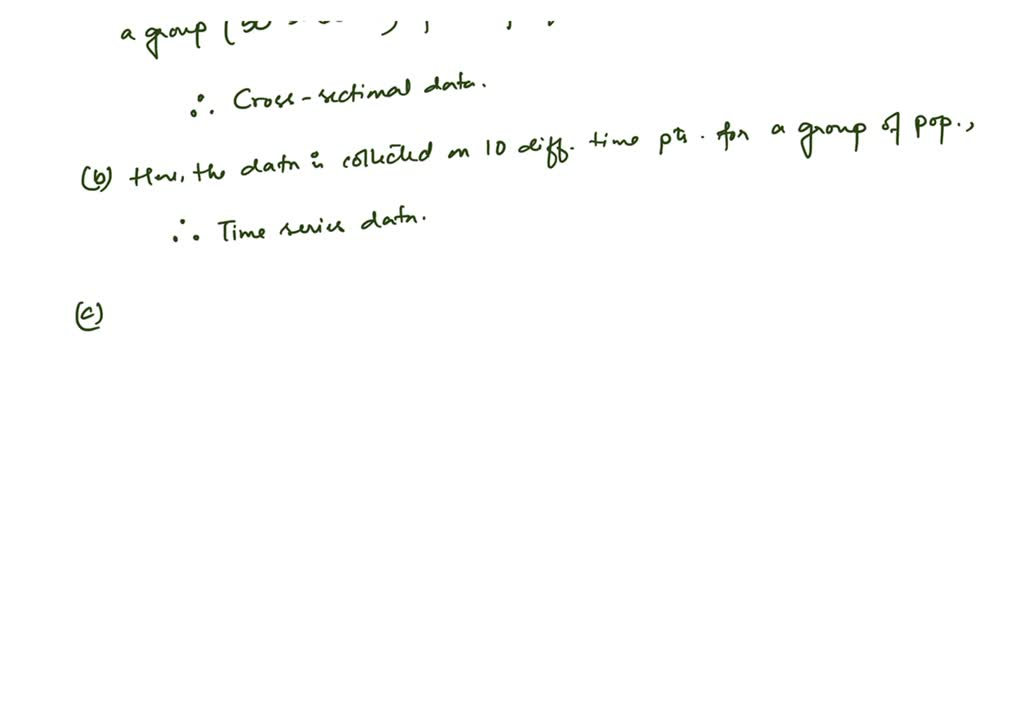 a group (
∴ Cross-sectional data.
(b) Here, the data is collected on 10 diff. time pts. for a group of pop.,
∴ Time series data.
(c)